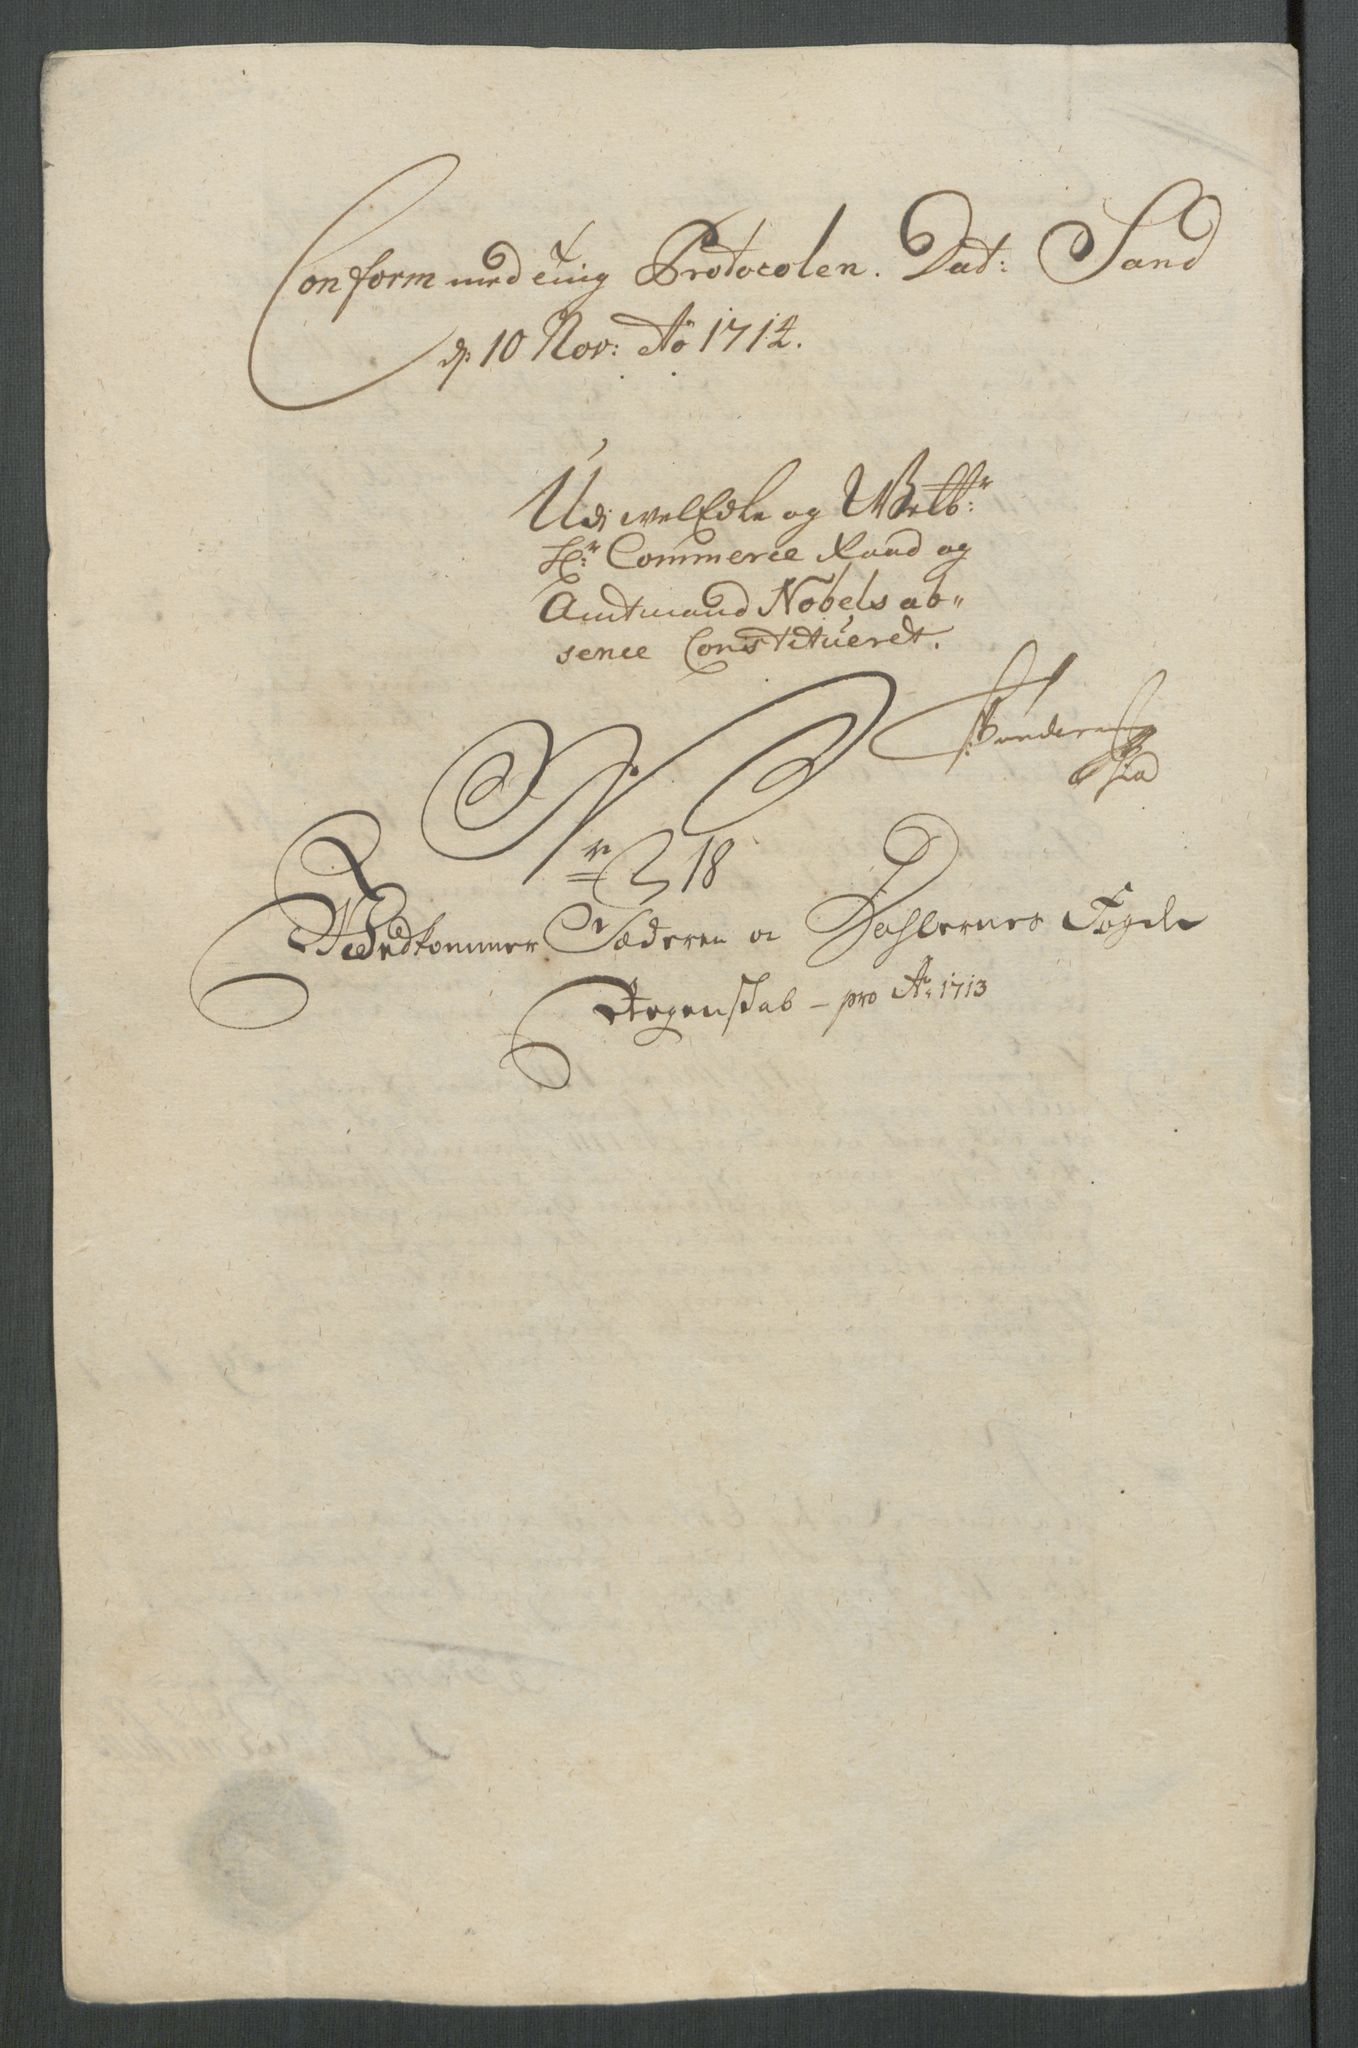 Conform med ting Protocolen. Dat: Sand
d: 10 Nov: Ao 1714.
Udi welEdle og Welb:r
Hr: Commerce Raad og
Amtmand Nobels ab„
sence Constitueret.
No
18
Vedkommer Jæderen og Dahlernes Fogde
Regenskab – pro Ao 1713